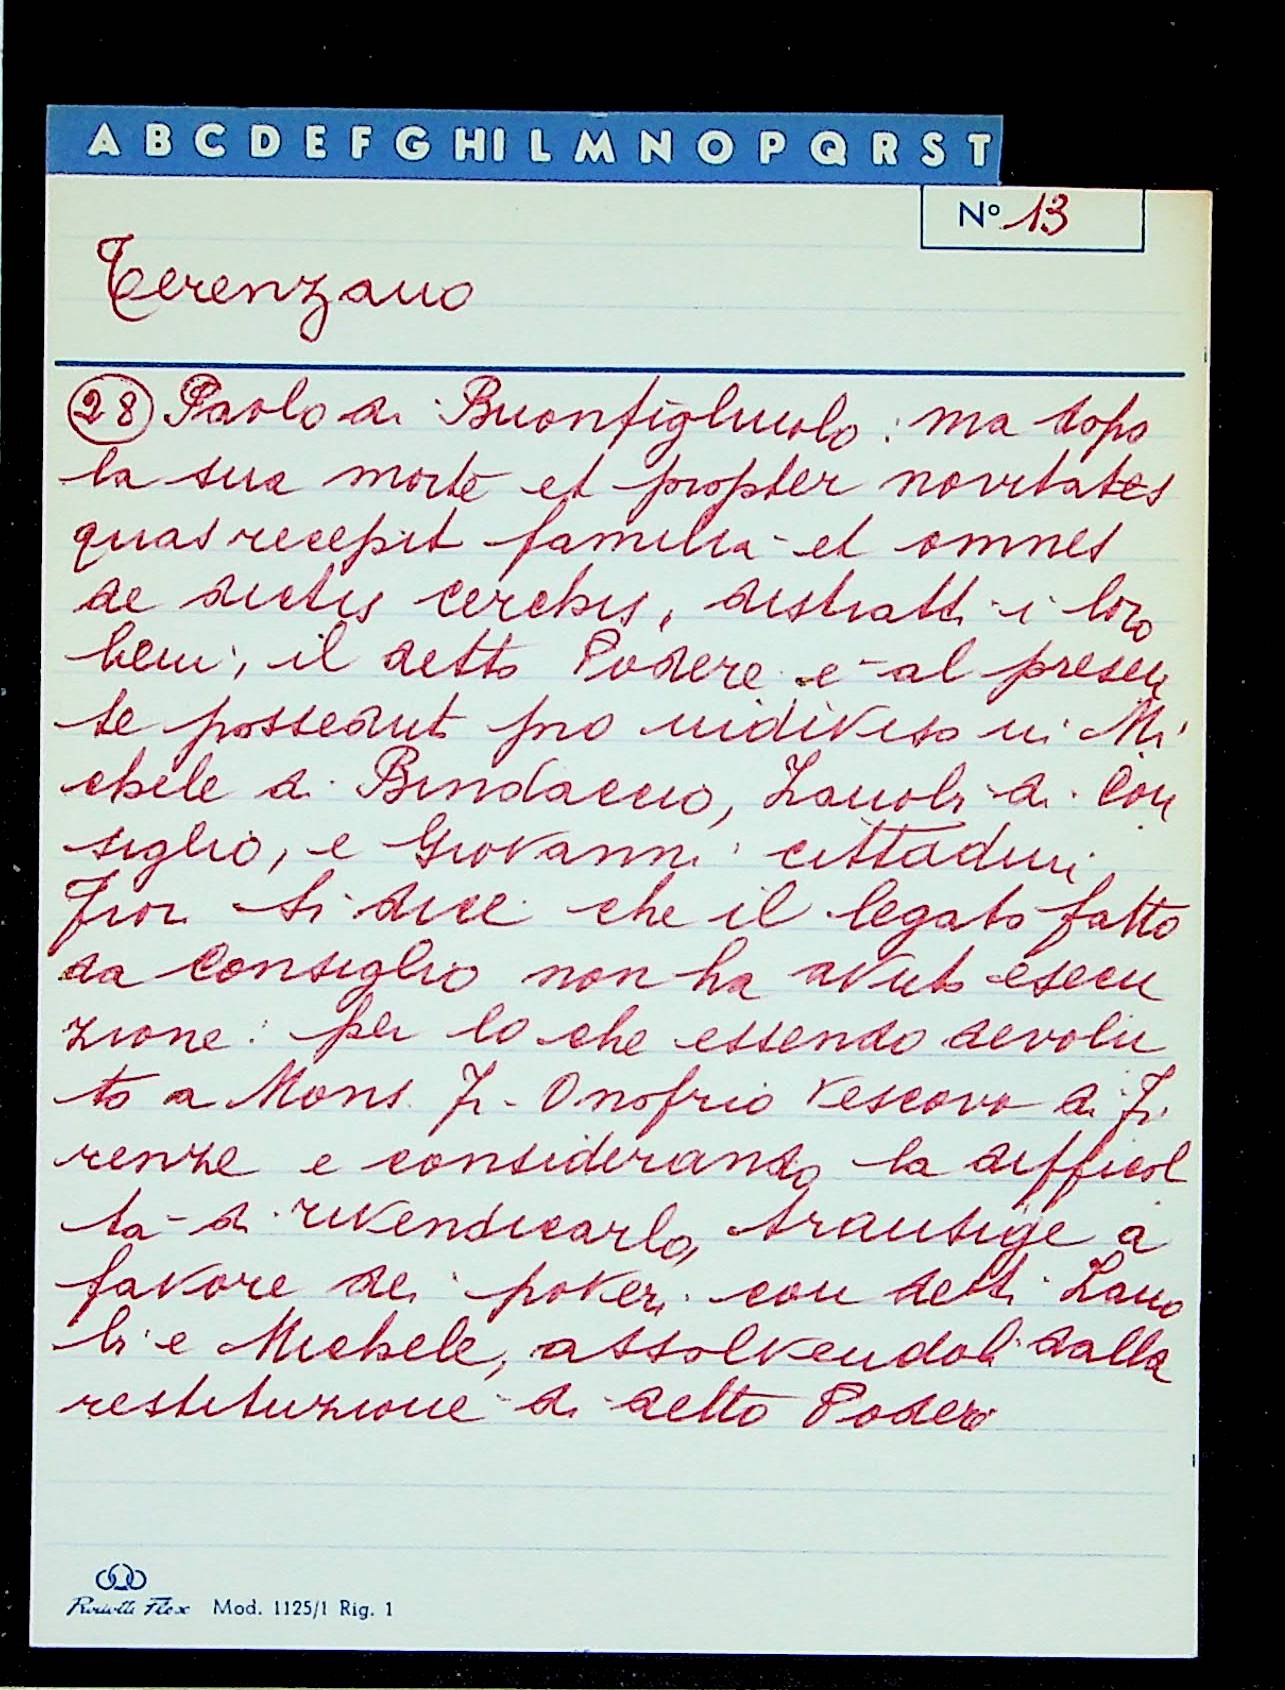 A B C D E F G HI L M N O P Q R S T
Nº 13
Terenzano
28 Paolo di Buonfigliuolo: ma dopo
la sua morte et propter novitates
quas recepit familia et omnes
de dictis cerchis, distratti i loro
beni, il detto Podere e al presen
te posseduto pro indiviso in Mi
chele di Bindaccio, Zanobi di Con
siglio, e Giovanni cittadini
Fior. Si dice che il legato fatto
da Consiglio non ha avuto esecu
zione: per lo che essendo devolu
to a Mons. Fr. Onofrio Vescovo di Fi
renze e considerando la difficol
ta di rivendicarlo, transige a
favore dei poveri con detti Zano
bi e Michele, assolvendoli dalla
restituzione di detto Podere
Mod. 1125/1 Rig. 1